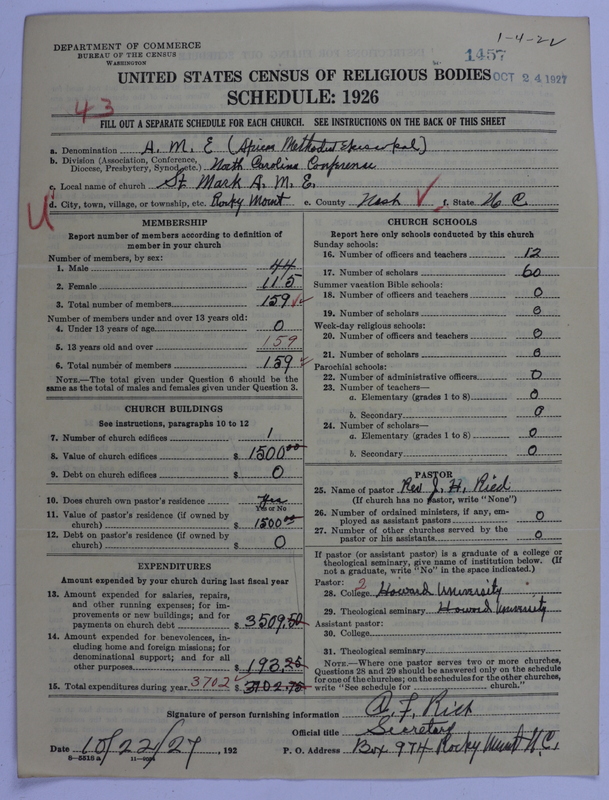 1-4-2
DEPARTMENT OF COMMERCE
BUREAU OF THE CENSUS
WASHINGTON
1457
OCT 24 1927
UNITED STATES CENSUS OF RELIGIOUS BODIES
SCHEDULE: 1926
43
FILL OUT A SEPARATE SCHEDULE FOR EACH CHURCH. SEE INSTRUCTIONS ON THE BACK OF THIS SHEET
a. Denomination A. M. E (African Methodist Episcopal)
b. Division (Association, Conference, Diocese, Presbytery, Synod, etc.) North Carolina Conference
c. Local name of church St Mark A. M. E.
d. City, town, village, or township, etc. Rocky Mount e. County Nash f. State N C.
U
MEMBERSHIP
Report number of members according to definition of
member in your church
Number of members, by sex:
1. Male 44
2. Female 115
3. Total number of members 159
Number of members under and over 13 years old:
4. Under 13 years of age 0
5. 13 years old and over 159
6. Total number of members 159
NOTE.—The total given under Question 6 should be the
same as the total of males and females given under Question 3.
CHURCH BUILDINGS
See instructions, paragraphs 10 to 12
7. Number of church edifices 1
8. Value of church edifices $ 1500 00
9. Debt on church edifices $ 0
10. Does church own pastor's residence Yes
Yes or No
11. Value of pastor's residence (if owned by
church) $ 1500 00
12. Debt on pastor's residence (if owned by
church) $ 0
EXPENDITURES
Amount expended by your church during last fiscal year
13. Amount expended for salaries, repairs,
and other running expenses; for im-
provements or new buildings; and for
payments on church debt $ 3509.50
14. Amount expended for benevolences, in-
cluding home and foreign missions; for
denominational support; and for all
other purposes $ 193.25
15. Total expenditures during year 3702 $ 3702.75
CHURCH SCHOOLS
Report here only schools conducted by this church
Sunday schools:
16. Number of officers and teachers 12
17. Number of scholars 60
Summer vacation Bible schools:
18. Number of officers and teachers 0
19. Number of scholars 0
Week-day religious schools:
20. Number of officers and teachers 0
21. Number of scholars 0
Parochial schools:
22. Number of administrative officers 0
23. Number of teachers—
a. Elementary (grades 1 to 8) 0
b. Secondary 0
24. Number of scholars—
a. Elementary (grades 1 to 8) 0
b. Secondary 0
PASTOR
25. Name of pastor Rev J. H. Ried
(If church has no pastor, write "None")
26. Number of ordained ministers, if any, em-
ployed as assistant pastors 0
27. Number of other churches served by the
pastor or his assistants 0
If pastor (or assistant pastor) is a graduate of a college or
theological seminary, give name of institution below. (If
not a graduate, write "No" in the space indicated.)
Pastor: 2
28. College Howard University
29. Theological seminary Howard University
Assistant pastor:
30. College
31. Theological seminary
NOTE.—Where one pastor serves two or more churches,
Questions 28 and 29 should be answered only on the schedule
for one of the churches; on the schedules for the other churches,
write "See schedule for church."
Signature of person furnishing information
Official title Secretary
Date 10/22/27, 192 P. O. Address Box 974 Rocky Mount N.C.
8-5518 a